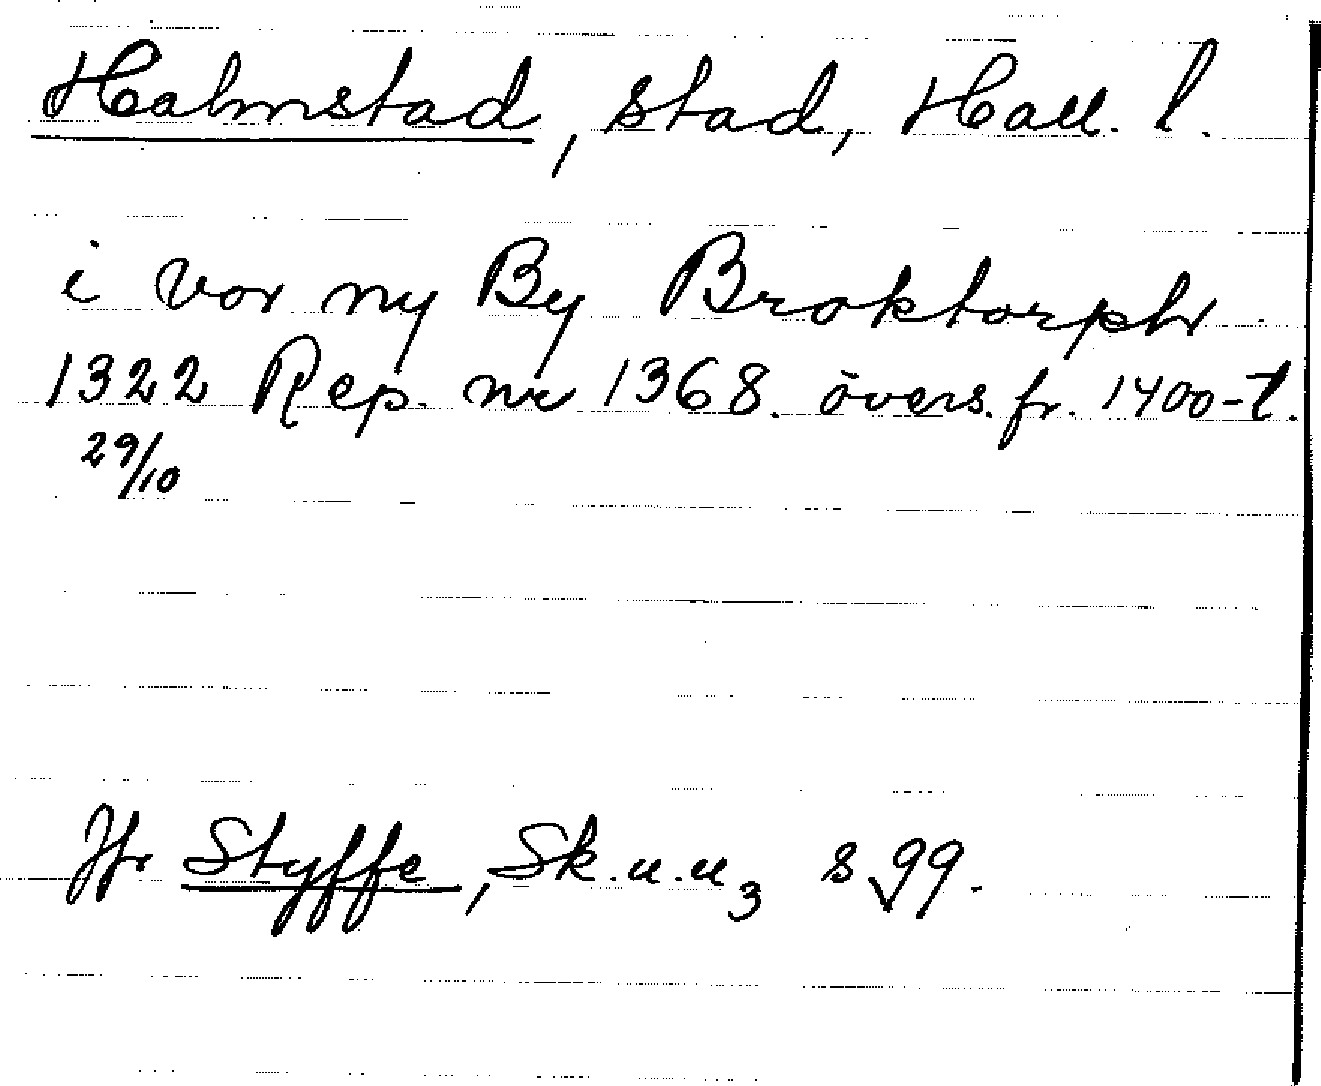 Halmstad, stad, Hall. l.
i vor ny By Broktorph
1322 Rep. nr 1368. övers. fr. 1400-t.
29/10
Jfr Styffe, Sk.u.u3 s 99.